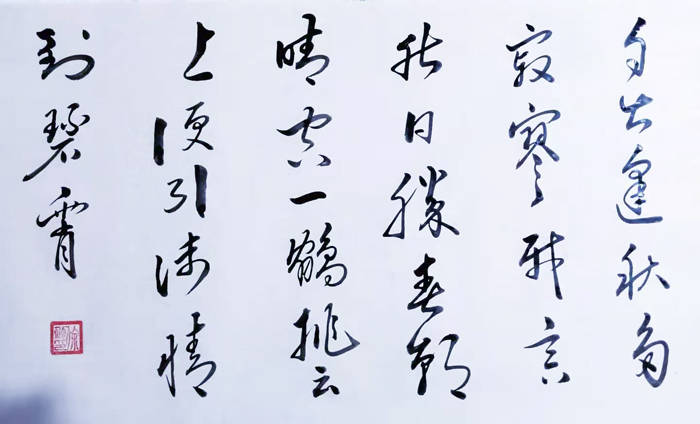 自古逢秋
寂寥我言
秋日勝春朝
晴空一鶴排云
上便引诗情
到碧霄